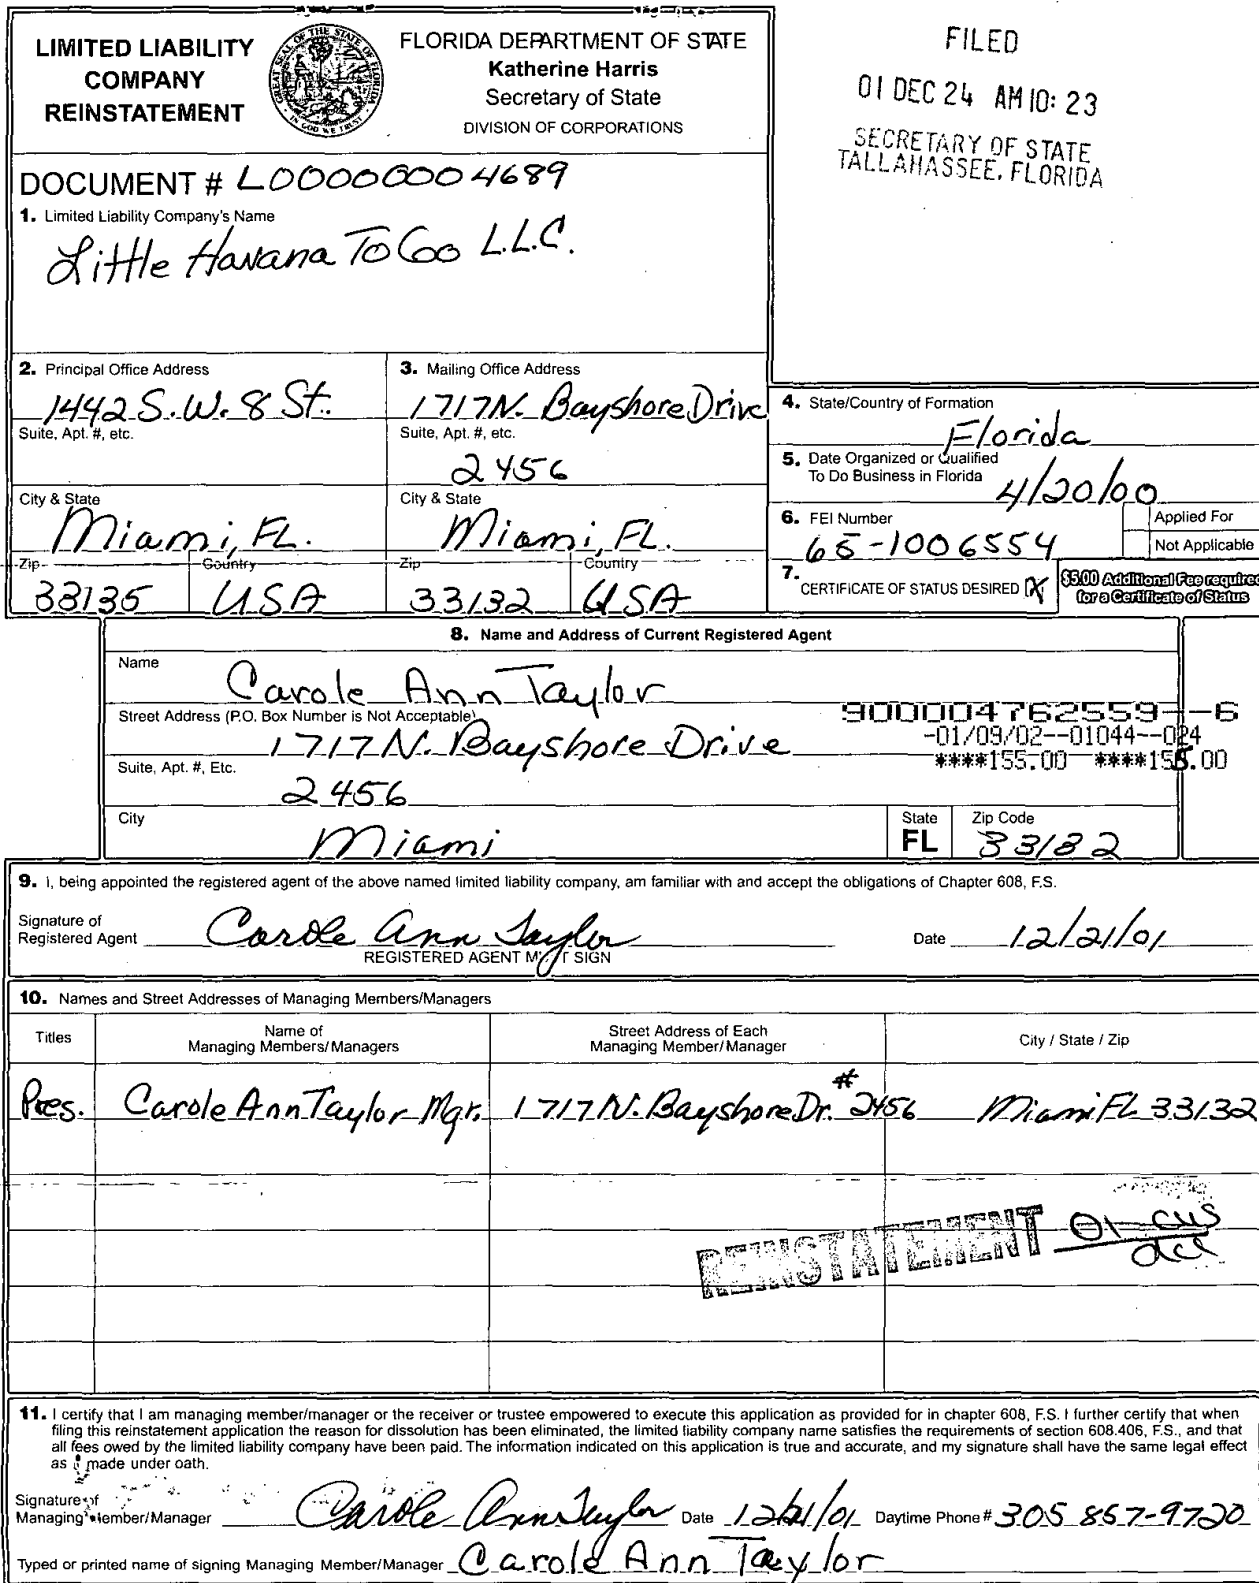 LIMITED LIABILITY
COMPANY
REINSTATEMENT
GREAT SEAL OF THE STATE OF FLORIDA
IN GOD WE TRUST
FLORIDA DEPARTMENT OF STATE
Katherine Harris
Secretary of State
DIVISION OF CORPORATIONS
FILED
01 DEC 24 AM 10: 23
SECRETARY OF STATE
TALLAHASSEE, FLORIDA
DOCUMENT # L00000004689
1. Limited Liability Company's Name
Little Havana To Go L.L.C.
2. Principal Office Address
1442 S.W. 8 St.
Suite, Apt. #, etc.
City & State
Miami, FL.
Zip Country
33135 USA
3. Mailing Office Address
1717 N. Bayshore Drive
Suite, Apt. #, etc.
2456
City & State
Miami, FL.
Zip Country
33132 USA
4. State/Country of Formation
Florida
5. Date Organized or Qualified
To Do Business in Florida
4/20/00
6. FEI Number
65-1006554
Applied For
Not Applicable
7. CERTIFICATE OF STATUS DESIRED X
$5.00 Additional Fee required
for a Certificate of Status
8. Name and Address of Current Registered Agent
Name
Carole Ann Taylor
Street Address (P.O. Box Number is Not Acceptable)
1717 N. Bayshore Drive
900004762559--6
-01/09/02--01044--024
****155.00 ****155.00
Suite, Apt. #, Etc.
2456
City
Miami
State
FL
Zip Code
33132
9. I, being appointed the registered agent of the above named limited liability company, am familiar with and accept the obligations of Chapter 608, F.S.
Signature of
Registered Agent Carole Ann Taylor Date 12/21/01
REGISTERED AGENT MUST SIGN
10. Names and Street Addresses of Managing Members/Managers
Titles
Name of
Managing Members/Managers
Street Address of Each
Managing Member/Manager
City / State / Zip
Pres. Carole Ann Taylor Mgr. 1717 N. Bayshore Dr. #2456 Miami FL 33132
REINSTATEMENT 01 cus
dcc
11. I certify that I am managing member/manager or the receiver or trustee empowered to execute this application as provided for in chapter 608, F.S. I further certify that when
filing this reinstatement application the reason for dissolution has been eliminated, the limited liability company name satisfies the requirements of section 608.406, F.S., and that
all fees owed by the limited liability company have been paid. The information indicated on this application is true and accurate, and my signature shall have the same legal effect
as if made under oath.
Signature of
Managing Member/Manager Carole Ann Taylor Date 12/21/01 Daytime Phone # 305 857-9720
Typed or printed name of signing Managing Member/Manager Carole Ann Taylor